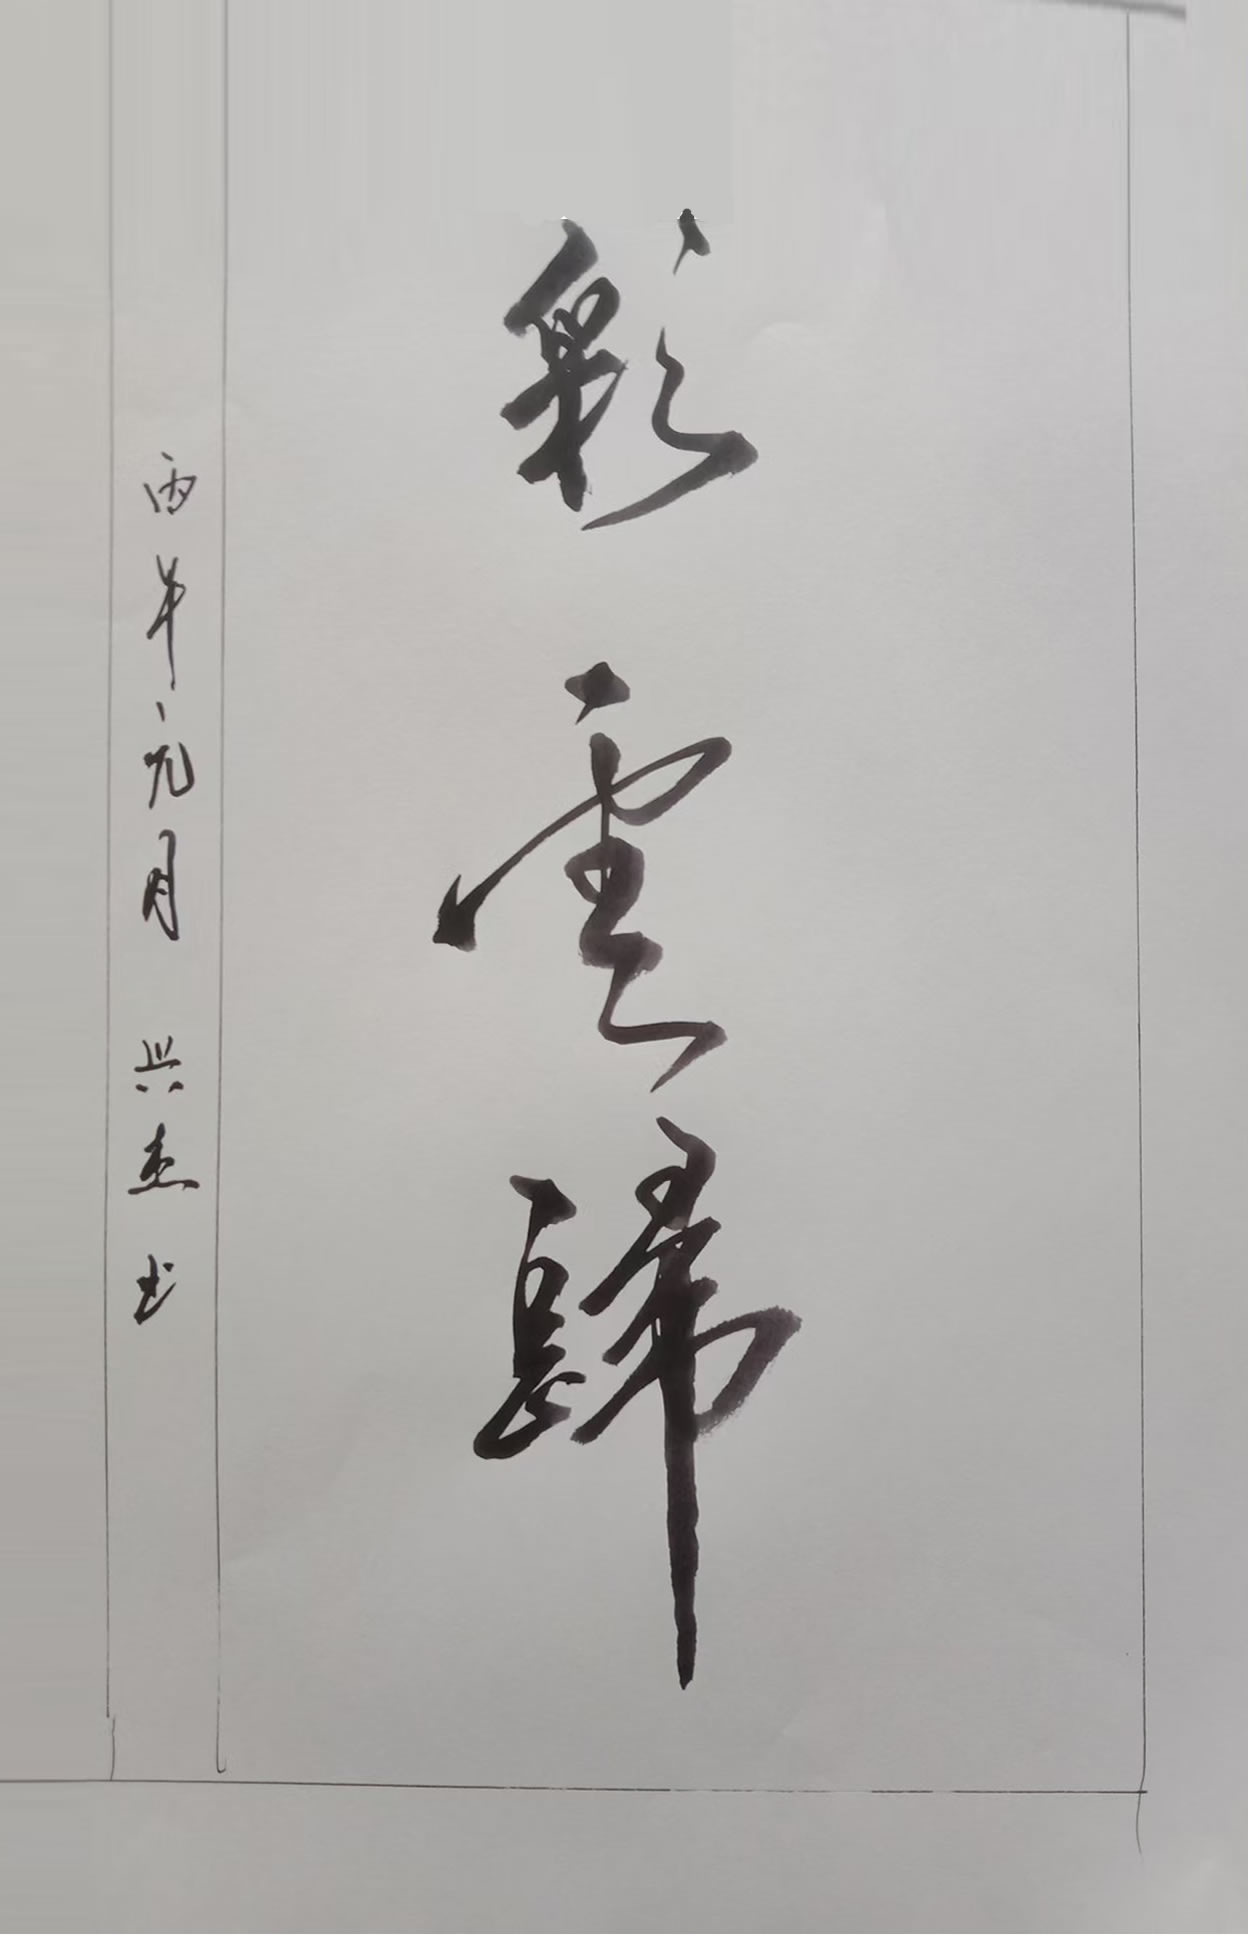 彩雲歸
丙午元月 兴杰书